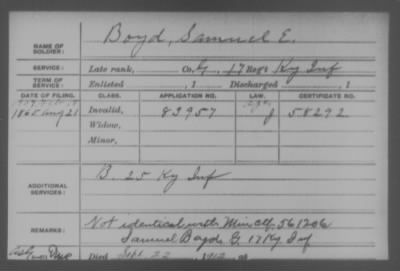 NAME OF SOLDIER: Boyd, Samuel E.
SERVICE: Late rank, Co. G, 17 Reg't Ky Inf
TERM OF SERVICE: Enlisted , 1 Discharged , 1
DATE OF FILING. CLASS. APPLICATION NO. LAW. CERTIFICATE NO.
1865 Aug 21 Invalid, 83957 58292
Widow,
Minor,
ADDITIONAL SERVICES: B. 25 Ky Inf
REMARKS: Not identical with Min ctf. 561206
Samuel Boyd, G. 17 Ky Inf
Died Sept. 22, 1912, at